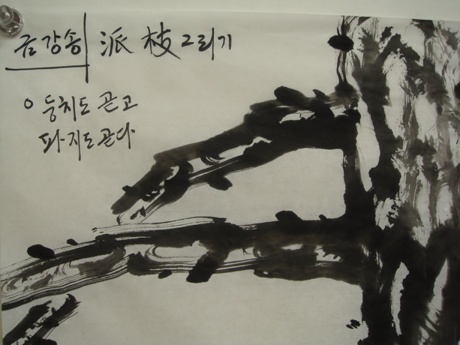 금강송 派枝그리기
○ 둥치도 곧고
파지도곧다